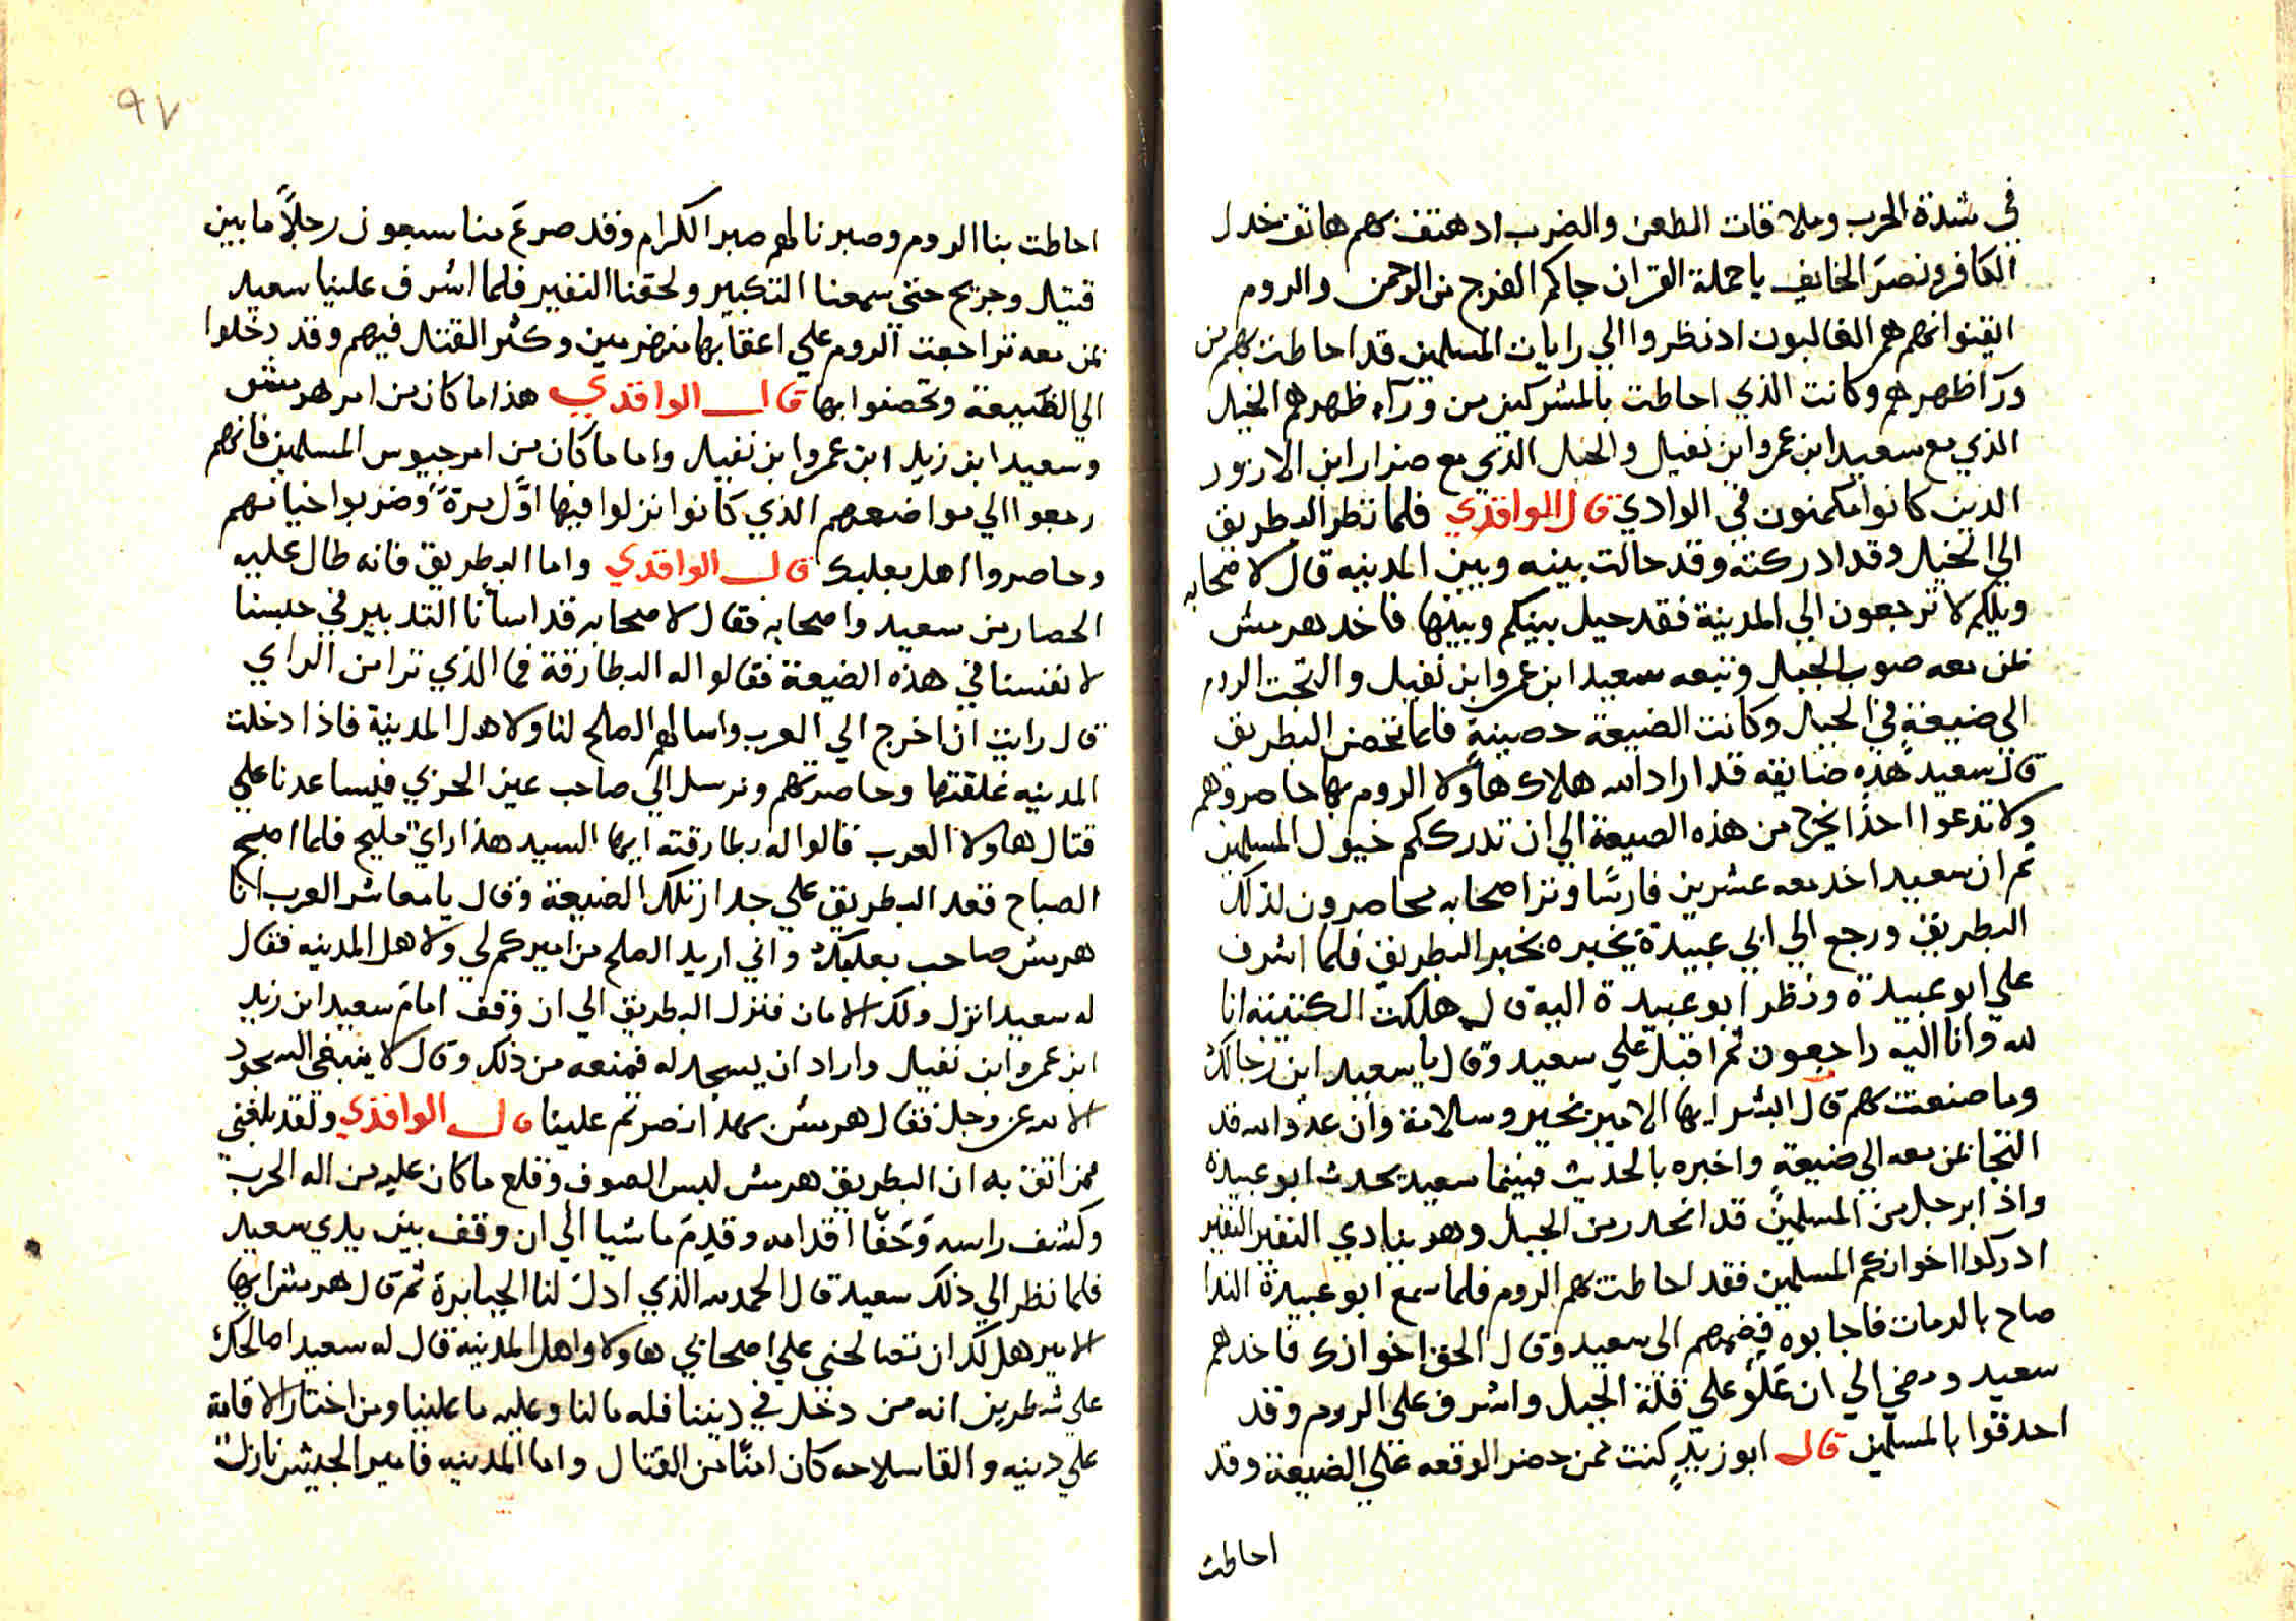 في شدة الحرب وملاقات الطعن والضرب اد هتف بهم هاتف خدل
الكافر ونصر الخايف يا حملة القران جاكم الفرج من الرحمن والروم
ايقنوا انهم هم الغالبون اد نظروا الي رايات المسلمين قد احاطت بهم من
ورآ ظهرهم وكانت الذي احاطت بالمشركين من ورآء ظهرهم الخيل
الذي مع سعيد ابن عمروا بن نفيل والخيل الذي مع ضرار ابن الازور
الدين كانوا مكمنون في الوادي قال الواقدي فلما نظر البطريق
الي الخيل وقد ادركته وقد حالت بينه وبين المدينه قال لاصحابه
ويلكم لا ترجعون الي المدينة فقد حيل بينكم وبينها فاخد هربيس
بمن معه صوب الجبل وتبعه سعيد ابن عمروا بن نفيل والتجت الروم
الي ضيعةٍ في الجبل وكانت الضيعة حصينةٍ فلما تحصن البطريق
قال سعيد هذه ضايقه قد اراد الله هلاك هاولا الروم بها حاصروهم
ولا تدعوا احدًا يخرج من هذه الضيعة الي ان تدرككم خيول المسلمين
ثم ان سعيد اخد معه عشرين فارسًا وترا اصحابه محاصرون لذلك
البطريق ورجع الي ابي عبيدة يخبره بخبر البطريق فلما اشرف
علي ابو عبيدة ونظر ابو عبيدة اليه قال هلكت الكتيبه انا
لله وانا اليه راجعون ثم اقبل علي سعيد وقال يا سعيد اين رجالك
وما صنعت بهم قال ابشر ايها الامير بخير وسلامة وان عدوا الله قد
التجا بمن معه الي ضيعةٍ واخبره بالحديث فبينما سعيد يحدث ابو عبيدة
واذا برجل من المسلمين قد انحدر من الجبل وهو ينادي النفير النفير
ادركوا اخوانكم المسلمين فقد احاطت بهم الروم فلما سمع ابو عبيدة الندا
صاح بالرمات فاجابوه فضمهم الي سعيد وقال الحق اخوانك فاخدهم
سعيد ومضي الي ان علو علي قلة الجبل واشرف علي الروم وقد
احدقوا بالمسلمين قال ابو زيدٍ كنت ممن حضر الوقعه علي الضيعة وقد
احاطت
٩٧
احاطت بنا الروم وصبرنا لهم صبر الكرام وقد صرع منا سبعون رجلاً ما بين
قتيل وجريح حتي سمعنا التكبير ولحقنا النفير فلما اشرف علينا سعيد
بمن معه تراجعت الروم علي اعقابها منهزمين وكثر القتل فيهم وقد دخلوا
الي الضيعة وتحصنوا بها قال الواقدي هذا ما كان من امر هربيس
وسعيد ابن زيد ابن عمروا بن نفيل واما ما كان من امر جيوس المسلمين فانهم
رجعوا الي مواضعهم الذي كانوا نزلوا فيها اول مرة وضربوا خيامهم
وحاصروا اهل بعلبك قال الواقدي واما البطريق فانه طال عليه
الحصار من سعيد واصحابه فقال لاصحابه قد اسأنا التدبير في حبسنا
لانفسنا في هذه الضيعة فقالوا له البطارقة فما الذي ترا من الراي
قال رايت ان اخرج الي العرب واسالهم الصلح لنا ولاهل المدينة فاذا دخلت
المدينه غلقتها وحاصرتهم ونرسل الي صاحب عين الحزي فيساعدنا علي
قتال هاولا العرب فالوا له بطارقته ايها السيد هذا راي مليح فلما اصبح
الصباح قعد البطريق علي جدار تلك الضيعة وقال يا معاشر العرب انا
هربيس صاحب بعلبك واني اريد الصلح من اميركم لي ولاهل المدينه فقال
له سعيد انزل ولك الامان فنزل البطريق الي ان وقف امام سعيد ابن زيد
ابن عمروا بن نفيل واراد ان يسجد له فمنعه من ذلك وقال لا ينبغي السجود
الا لله عز وجل فقال هربيس بهذا نصرتم علينا قال الواقدي ولقد بلغني
ممن اتق به ان البطريق هربيس لبس الصوف وقلع ما كان عليه من اله الحرب
وكشف راسه وحفا اقدامه وقدم ماشيا الي ان وقف بين يدي سعيد
فلما نظر الي ذلك سعيد قال الحمد لله الذي ادل لنا الجبابرة ثم قال هربيس ايها
الامير هل لك ان تصالحني علي اصحابي هاولا واهل المدينة قال له سعيد اصالحك
علي شرطين انه من دخل في ديننا فله ما لنا وعليه ما علينا ومن اختار الاقامة
علي دينه والقا سلاحه كان امنًا من القتال واما المدينه فامير الجيش نازل